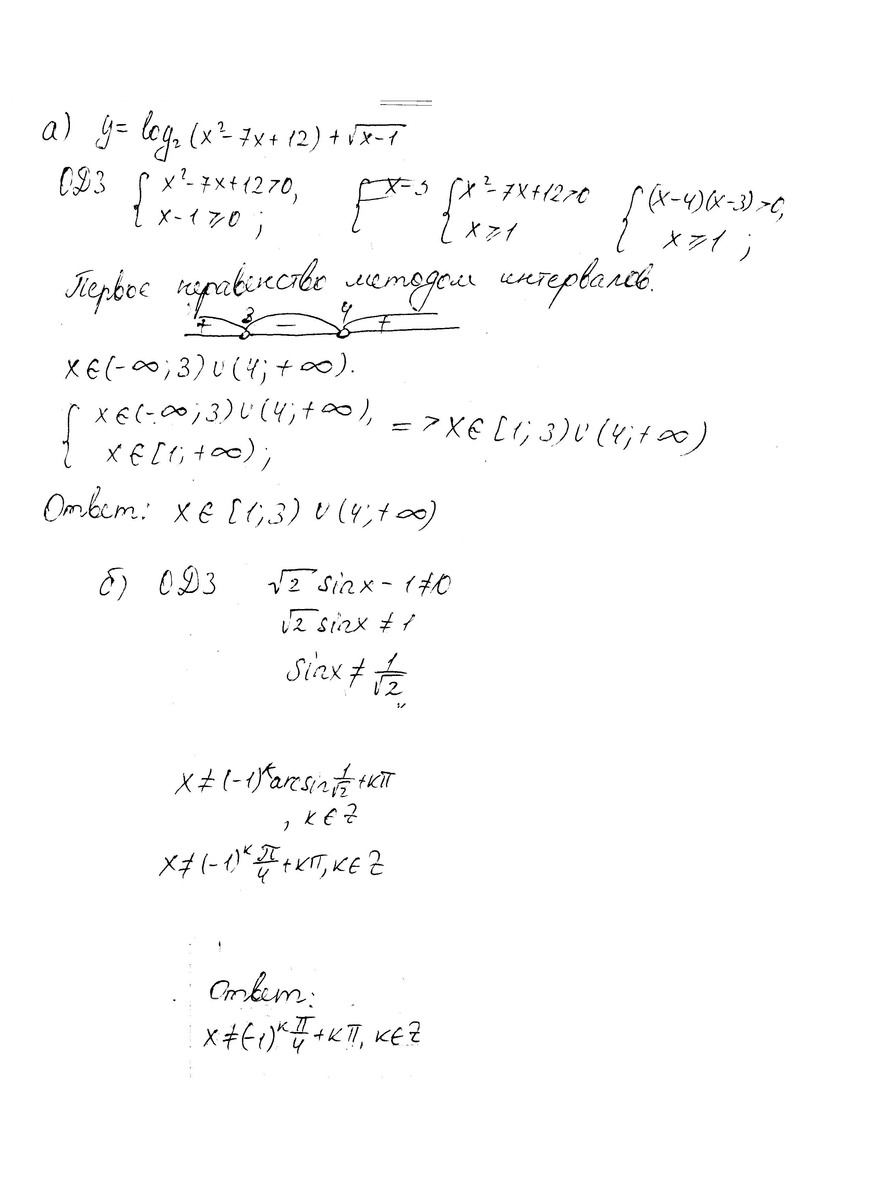 а) y = log₂ (x² - 7x + 12) + √x-1
ОДЗ { x² - 7x + 12 > 0, x - 1 ⩾ 0 ; { x² - 7x + 12 > 0 x ⩾ 1 { (x-4)(x-3) > 0, x ⩾ 1 ;
Первое неравенство методом интервалов.
+ 3 — 4 +
x ∈ (-∞; 3) ∪ (4; +∞).
{ x ∈ (-∞; 3) ∪ (4; +∞), x ∈ [1; +∞); => x ∈ [1; 3) ∪ (4; +∞)
Ответ: x ∈ [1; 3) ∪ (4; +∞)
б) ОДЗ √2 sinx - 1 ≠ 0
√2 sinx ≠ 1
sinx ≠ 1/√2
x ≠ (-1)ᵏ arcsin 1/√2 + кπ
, к ∈ Z
x ≠ (-1)ᵏ π/4 + кπ, к ∈ Z
Ответ:
x ≠ (-1)ᵏ π/4 + кπ, к ∈ Z